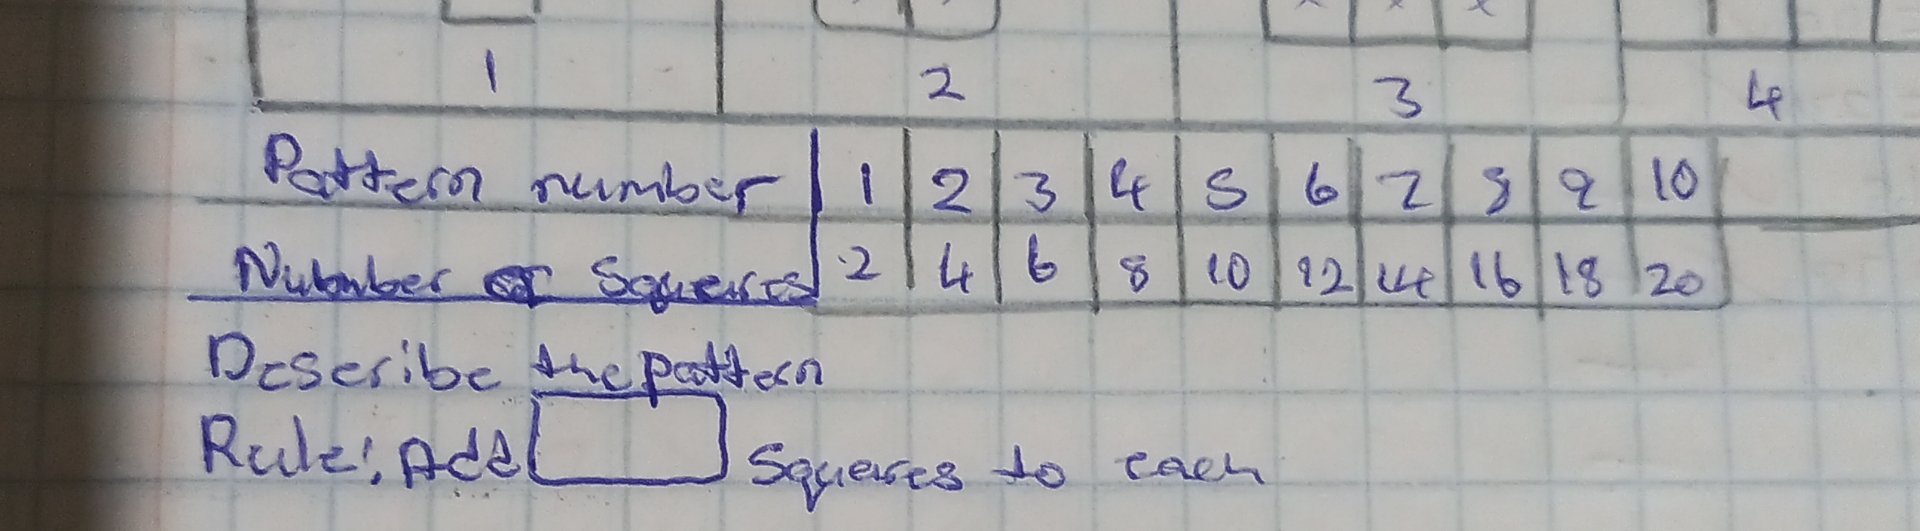 1 2 3 4
Pattern number 1 2 3 4 5 6 7 8 9 10
Nubmber of Squares 2 4 6 8 10 12 14 16 18 20
Describe the pattern
Rule: Add squares to each